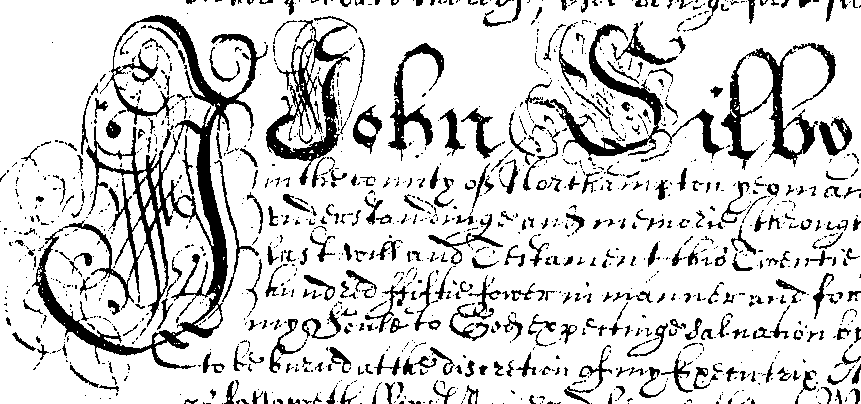 I John Silbo
in the county of Northampton yeoman
understandinge and memorie (throug
last will and Testament this Twentie
hundred fiftie fower in manner and for
my Soule to God expectinge salvation by
to be buried at the discretion of my Executrix
as followeth